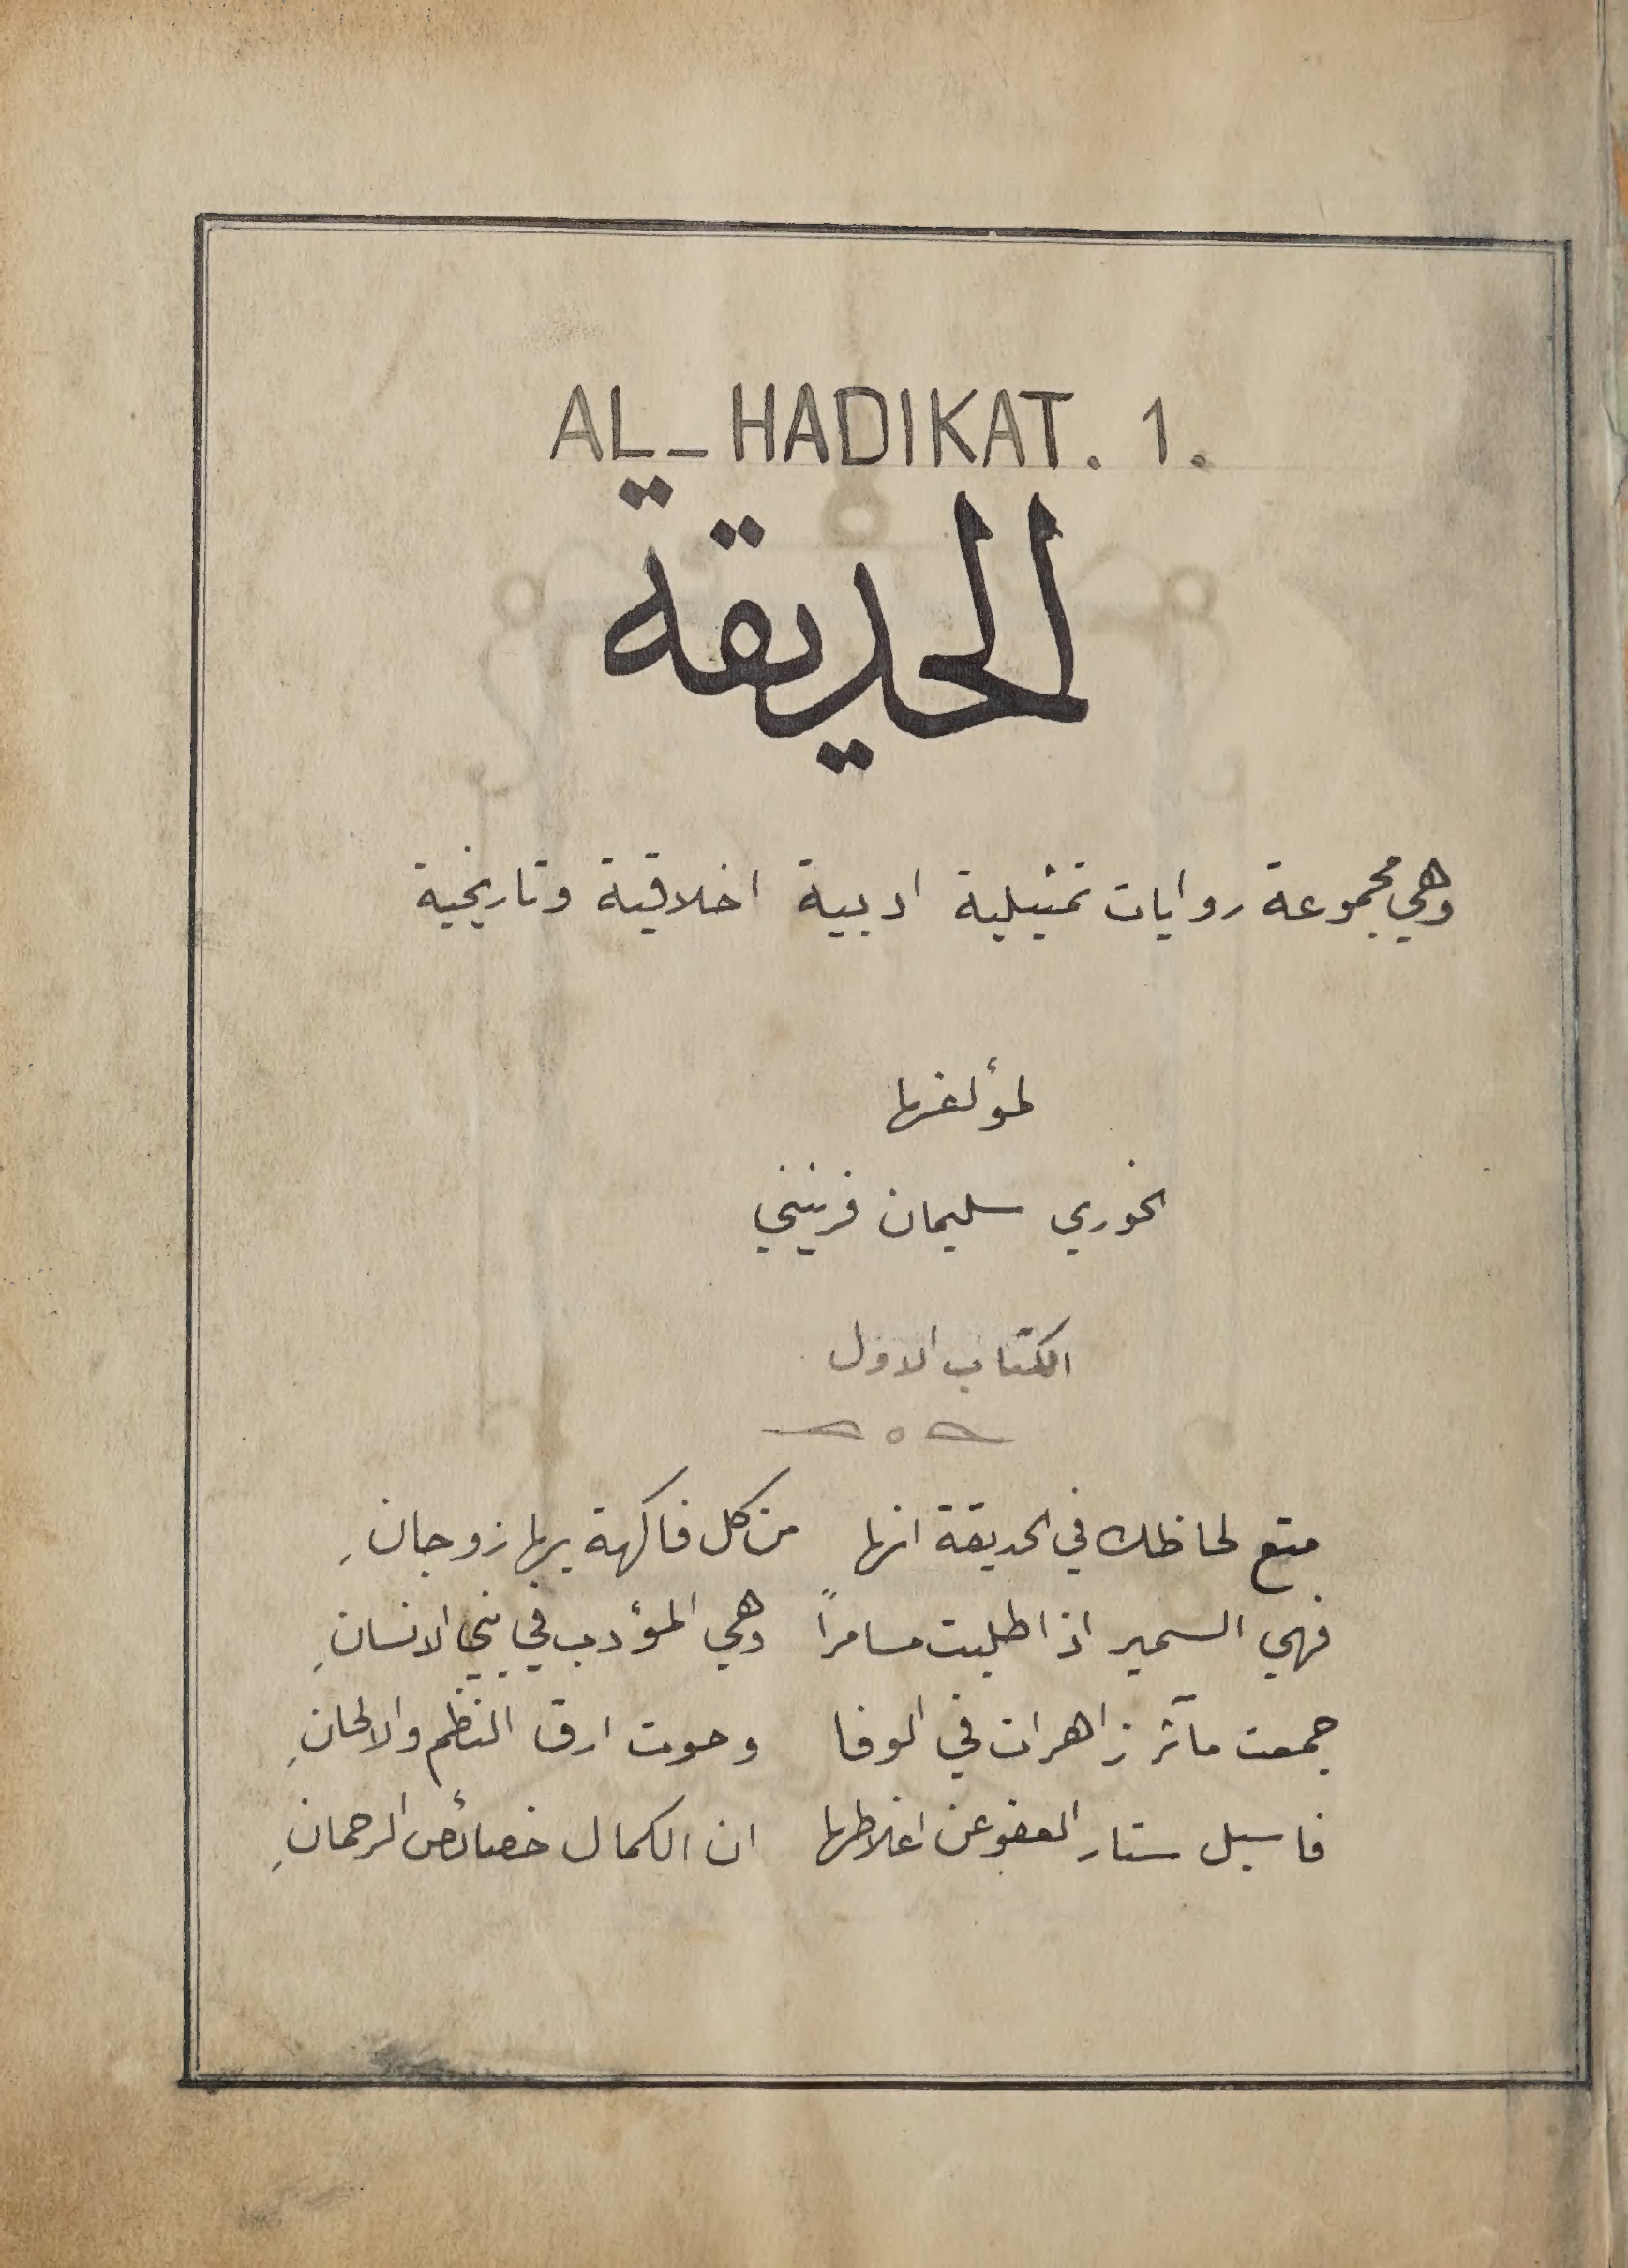 AL-HADIKAT. 1.
الحديقة
وهي مجموعة روايات تمثيلية ادبية اخلاقية وتاريخية
لمؤلفها
الخوري سليمان فرنيني
الكتاب الاول
متع لحاظك في الحديقة انها من كل فاكهة بها زوجانِ
فهي السمير اذا طلبت مسامراً وهي المؤدب في بني الانسانِ
جمعت مآثر زاهرات في الوفا وحوت ارق النظم والالحانِ
فاسبل ستار العفو عن اغلاطها ان الكمال خصائص الرحمانِ